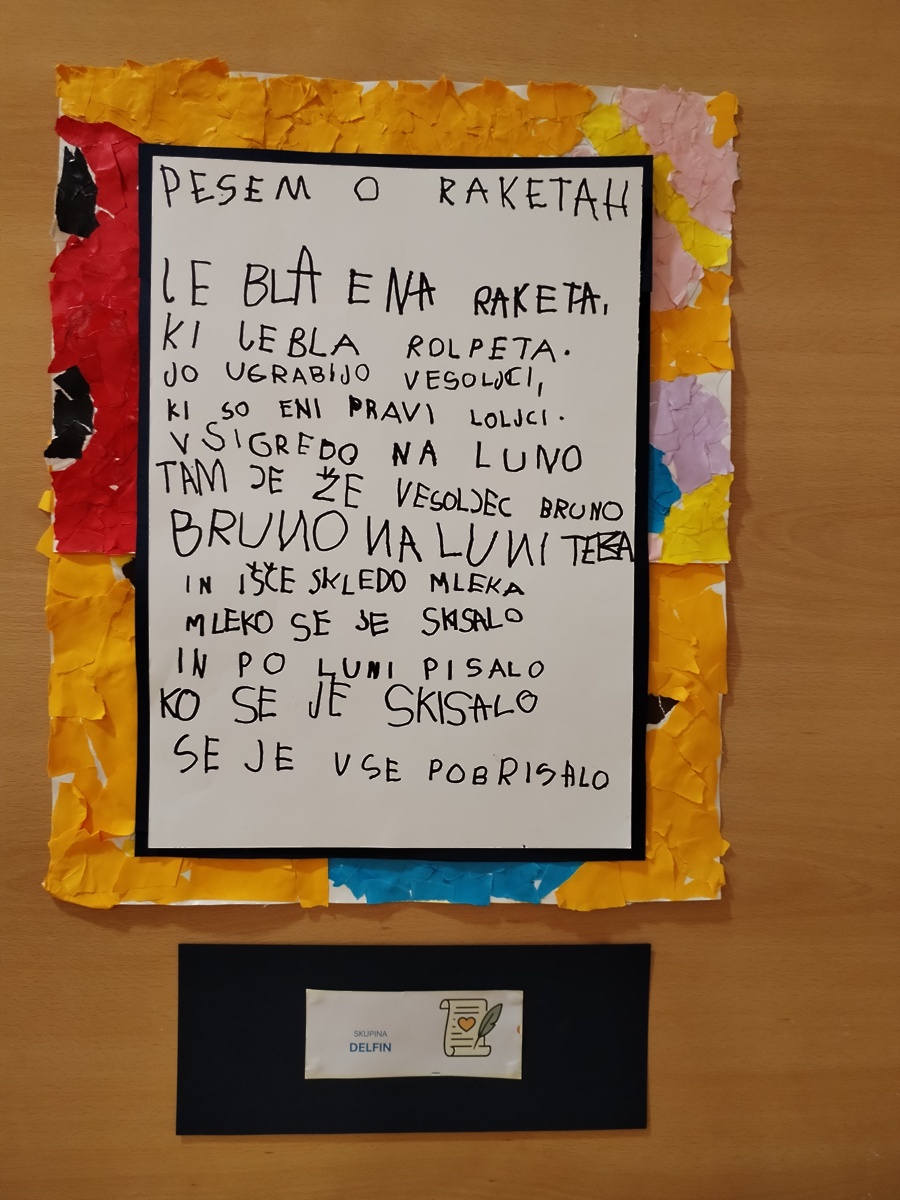 PESEM O RAKETAH
JE BLA ENA RAKETA,
KI JE BLA ROLPETA.
JO UGRABIJO VESOLJCI,
KI SO ENI PRAVI LOLJCI.
VSI GREDO NA LUNO
TAM JE ŽE VESOLJEC BRUNO
BRUNO NA LUNI TEKA
IN IŠČE SKLEDO MLEKA
MLEKO SE JE SKISALO
IN PO LUNI PISALO
KO SE JE SKISALO
SE JE VSE POBRISALO
SKUPINA
DELFIN